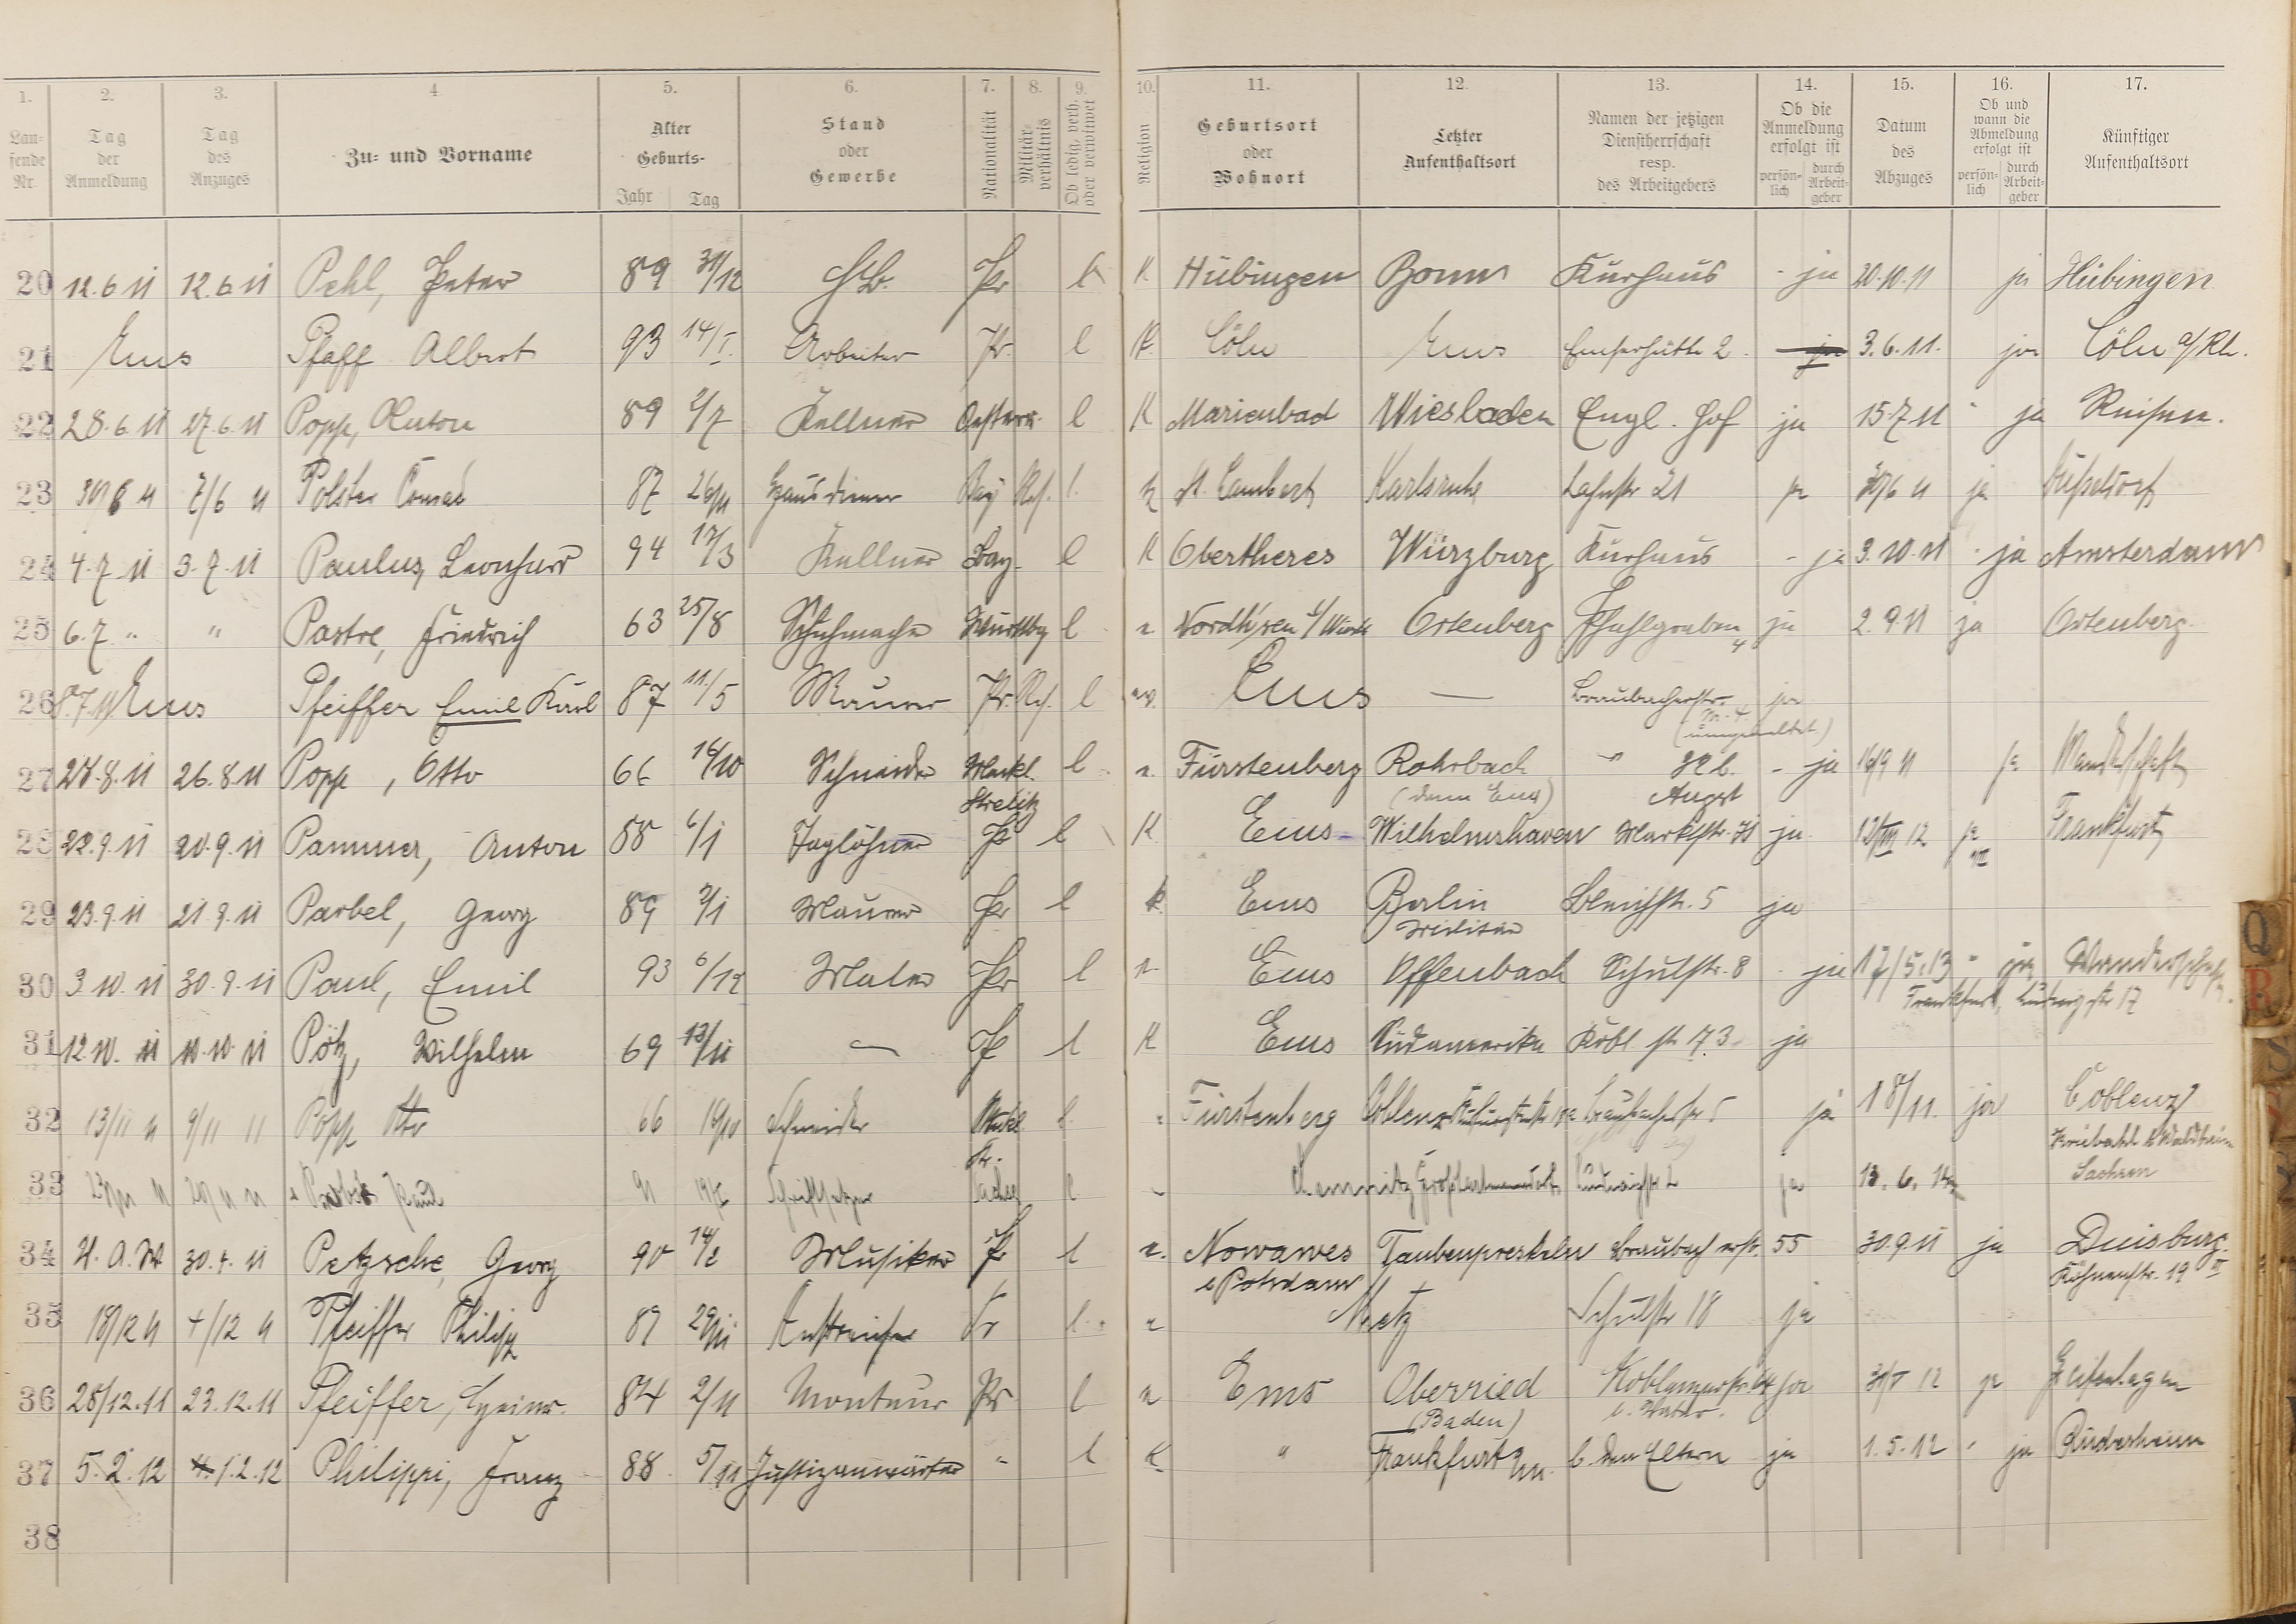 1. 2. 3. 4 5. 6. 7. 8. 9. 10. 11. 12. 13. 14. 15. 16. 17.
Lau-fende Nr. Tag der Anmeldung Tag des Anzuges Zu- und Vorname Alter Geburts- Jahr Tag Stand oder Gewerbe Nationalität Militär-verhältnis Ob ledig, verh. oder verwitwet Religion Geburtsort oder Wohnort Letzter Aufenthaltsort Namen der jetzigen Dienstherrschaft resp. des Arbeitgebers Ob die Anmeldung erfolgt ist persön-lich durch Arbeit-geber Datum des Abzuges Ob und wann die Abmeldung erfolgt ist persön-lich durch Arbeit-geber Künftiger Aufenthaltsort
20 12.6.11 12.6.11 Pehl, Peter 89 31/12 Pr K. Hübingen Bonn Kurhaus - ja 20.10.11 ja Hübingen
21 Ems Pfaff Albert 93 14/I. Arbeiter Pr. l K. Cöln Ems Emserhütte 2. ja 3.6.11. ja Cöln a/Rh.
22 28.6.11 27.6.11 Popp, Anton 89 2/7 Kellner Oesterr. l K Marienbad Wiesbaden Engl. Hof ja 15.7.11 " ja
23 7/6 11 Polster Conrad 87 26/11 Hausdiener Bay Res. l. k St. Lambert Karlsruhe Lahnstr 21 ja 11 ja Düsseldorf
24 4.7.11 3.7.11 Paulus, Leonhard 94 17/3 Kellner Bay. l K Obertheres Würzburg Kurhaus - ja 3.10.11 " ja Amsterdam
25 6.7 " " Pastre, Friedrich 63 25/8 Schuhmacher Württbg l Ortenberg Pfahlgraben 4 ja 2.9.11 ja Ortenberg.
26 8.7.11 Ems Pfeiffer Emil Karl 87 11/5 Maurer Pr. Res. l ev. Ems — Braubacherstr. Nr. 4 ja
(umgemeldet)
27 28.8.11 26.8.11 Popp, Otto 66 16/10 Schneider Meckl. l Fürstenberg Rohrbach - ja 16/9 11 ja Wanderschaft
Strelitz (dann Ems) August
28 22.9.11 20.9.11 Pammer, Anton 88 6/1 Taglöhner Pr l K Ems Wilhelmshaven Marktstr. ja 12 ja Frankfurt
29 23.9.11 21.9.11 Parbel, Georg 89 2/1 Maurer Pr l k. Ems Berlin Bleichstr. 5 ja
Militär
30 3.10.11 30.9.11 Paul, Emil 93 6/12 Maler Pr l Ems Offenbach Schulstr. 8 - ja 17/5.13 " ja Wanderschaft.
Frankfurt, Ludwigstr 17
31 12.10.11 10.10.11 Pötz, Wilhelm 69 13/11 — Pr l K Ems Südamerika Kobl. str. 73 ja
32 13/11 11 9/11 11 Popp Otto 66 16/10 Schneider Meckl. Str. l Fürstenberg Coblenz Braubacherstr 5 ja 18/11. ja Coblenz
33 Paul 91 Schriftsetzer Sachsen l Chemnitz Ludwigstr 2 ja 13. 6. Kriebstein b Waldheim
Sachsen
34 30.4.11 Petzsche, Georg 90 14/2 Musiker Pr l Nowawes Taubenpreskeln Braubacherstr. 55 30.9.11 ja Duisburg.
b Potsdam
35 18/12 11 4/12 11 Pfeiffer Philipp 89 29/11 Anstreicher Pr l. Metz Schulstr 18 ja
36 28/12.11 23.12.11 Pfeiffer, Heinr. 84 2/11 Monteur Pr l Ems Oberried Koblenzerstr. 64 ja 31/V 12 ja
(Baden) b. Vater.
37 5.2.12 1.2.12 Philippi, Franz 88 5/11 Justizanwärter " l K " Frankfurt/M. b. den Eltern ja 1.5.12 " ja Rüdesheim
38
Q
R
S